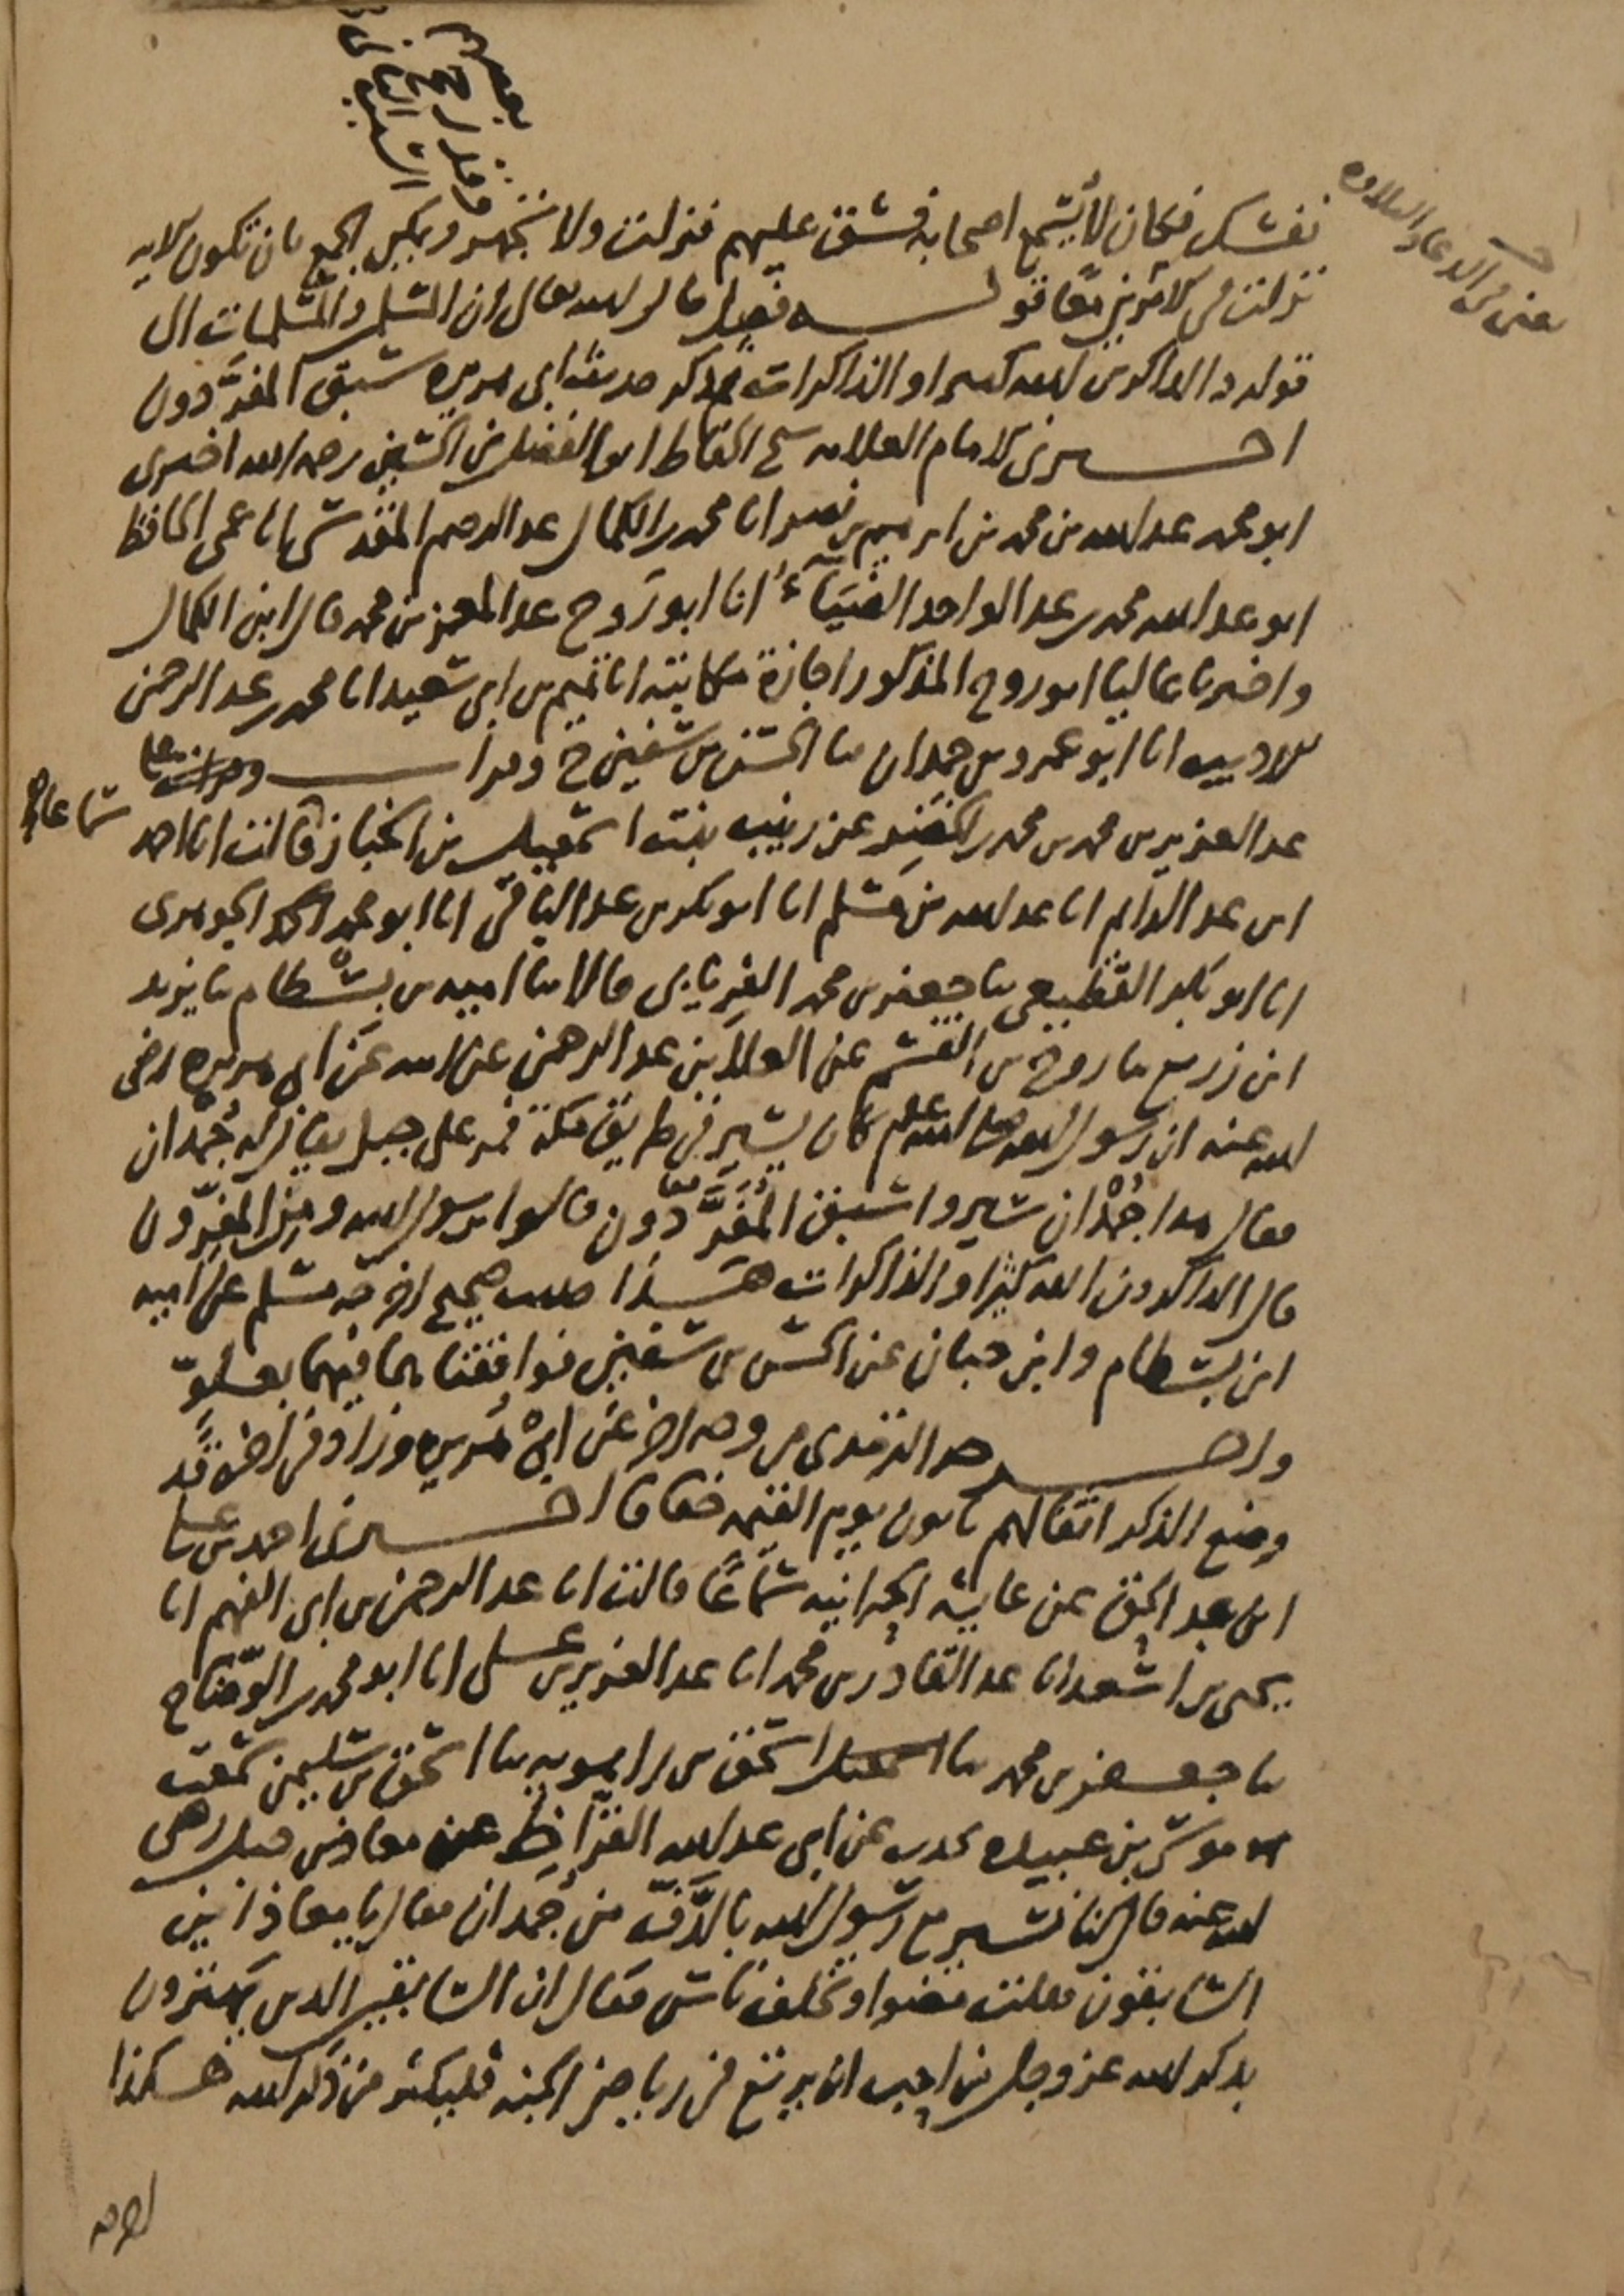 نفسك فكان لا يسمع اصحابه فشق عليهم فنزلت ولا تجهر ويمكن الجمع بان تكون الايه
نزلت في الامرين معا قوله فصل قال الله تعالى ان المسلمين والمسلمات الى
قوله والذاكرين الله كثيرا والذاكرات ثم ذكر حديث ابي هريره سبق المفردون
اخبرني الامام العلامه شيخ الحفاظ ابو الفضل بن الحسين رحمه الله اخبرني
ابو محمد عبد الله بن محمد بن ابرهيم بن نصر انا محمد بن الكمال عبد الرحيم المقدسي انا عمي الحافظ
ابو عبد الله محمد بن عبد الواحد الضياء انا ابو روح عبد المعز بن محمد قال ابن الكمال
واخبرنا عاليا ابو روح المذكور اجازة مكاتبة انا تميم بن ابي سعيد انا محمد بن عبد الرحمن
الاديب انا ابو عمرو بن حمدان نا الحسن بن سفين ح وقرات على
عبد العزيز بن محمد بن محمد بن الخضر عن زينب بنت اسمعيل بن الخباز قالت انا احمد
سماعا
ابن عبد الدايم انا عبد الله بن مسلم انا ابو بكر بن عبد الباقي انا ابو محمد الجوهري
انا ابو بكر القطيعي نا جعفر بن محمد الفريابي قالا نا اميه بن بسطام نا يزيد
ابن زريع نا روح بن القسم عن العلا بن عبد الرحمن عن ابيه عن ابي هريره رضي
الله عنه ان رسول الله صلى الله عليه وسلم كان يسير في طريق مكة فمر على جبل يقال له جمدان
فقال هذا جمدان سيروا سبق المفردون قالوا يرسول الله ومن المفردون
معا
قال الذاكرون الله كثيرا والذاكرات هذا حديث صحيح اخرجه مسلم عن اميه
ابن بسطام وابن حبان عن الحسن بن سفين فوافقنا بهما فيهما بعلو
واخرجه الترمذي من وجه اخر عن ابي هريره وزاد في اخره قد
وضع الذكر اثقالهم ياتون يوم القيمه خفافا اخبرني احمد بن علي
ابن عبد الحق عن عايشه الحرانيه سماعا قالت انا عبد الرحمن بن ابي الفهم انا
يحيى بن اسعد انا عبد القادر بن محمد انا عبد العزيز بن علي انا ابو محمد بن الوضاح
نا جعفر بن محمد نا اسحق بن راهويه نا اسحق بن سليمن سمعت
موسى بن عبيده يحدث عن ابي عبد الله القراظ عن معاذ بن جبل رضي
الله عنه قال كنا نسير مع رسول الله بالدف من جمدان فقال يا معاذ اين
السابقون فقلت مضوا وتخلف ناس فقال ان السابقين الذين يهتزون
بذكر الله عز وجل من احب ان يرتع في رياض الجنه فليكثر من ذكر الله هكذا